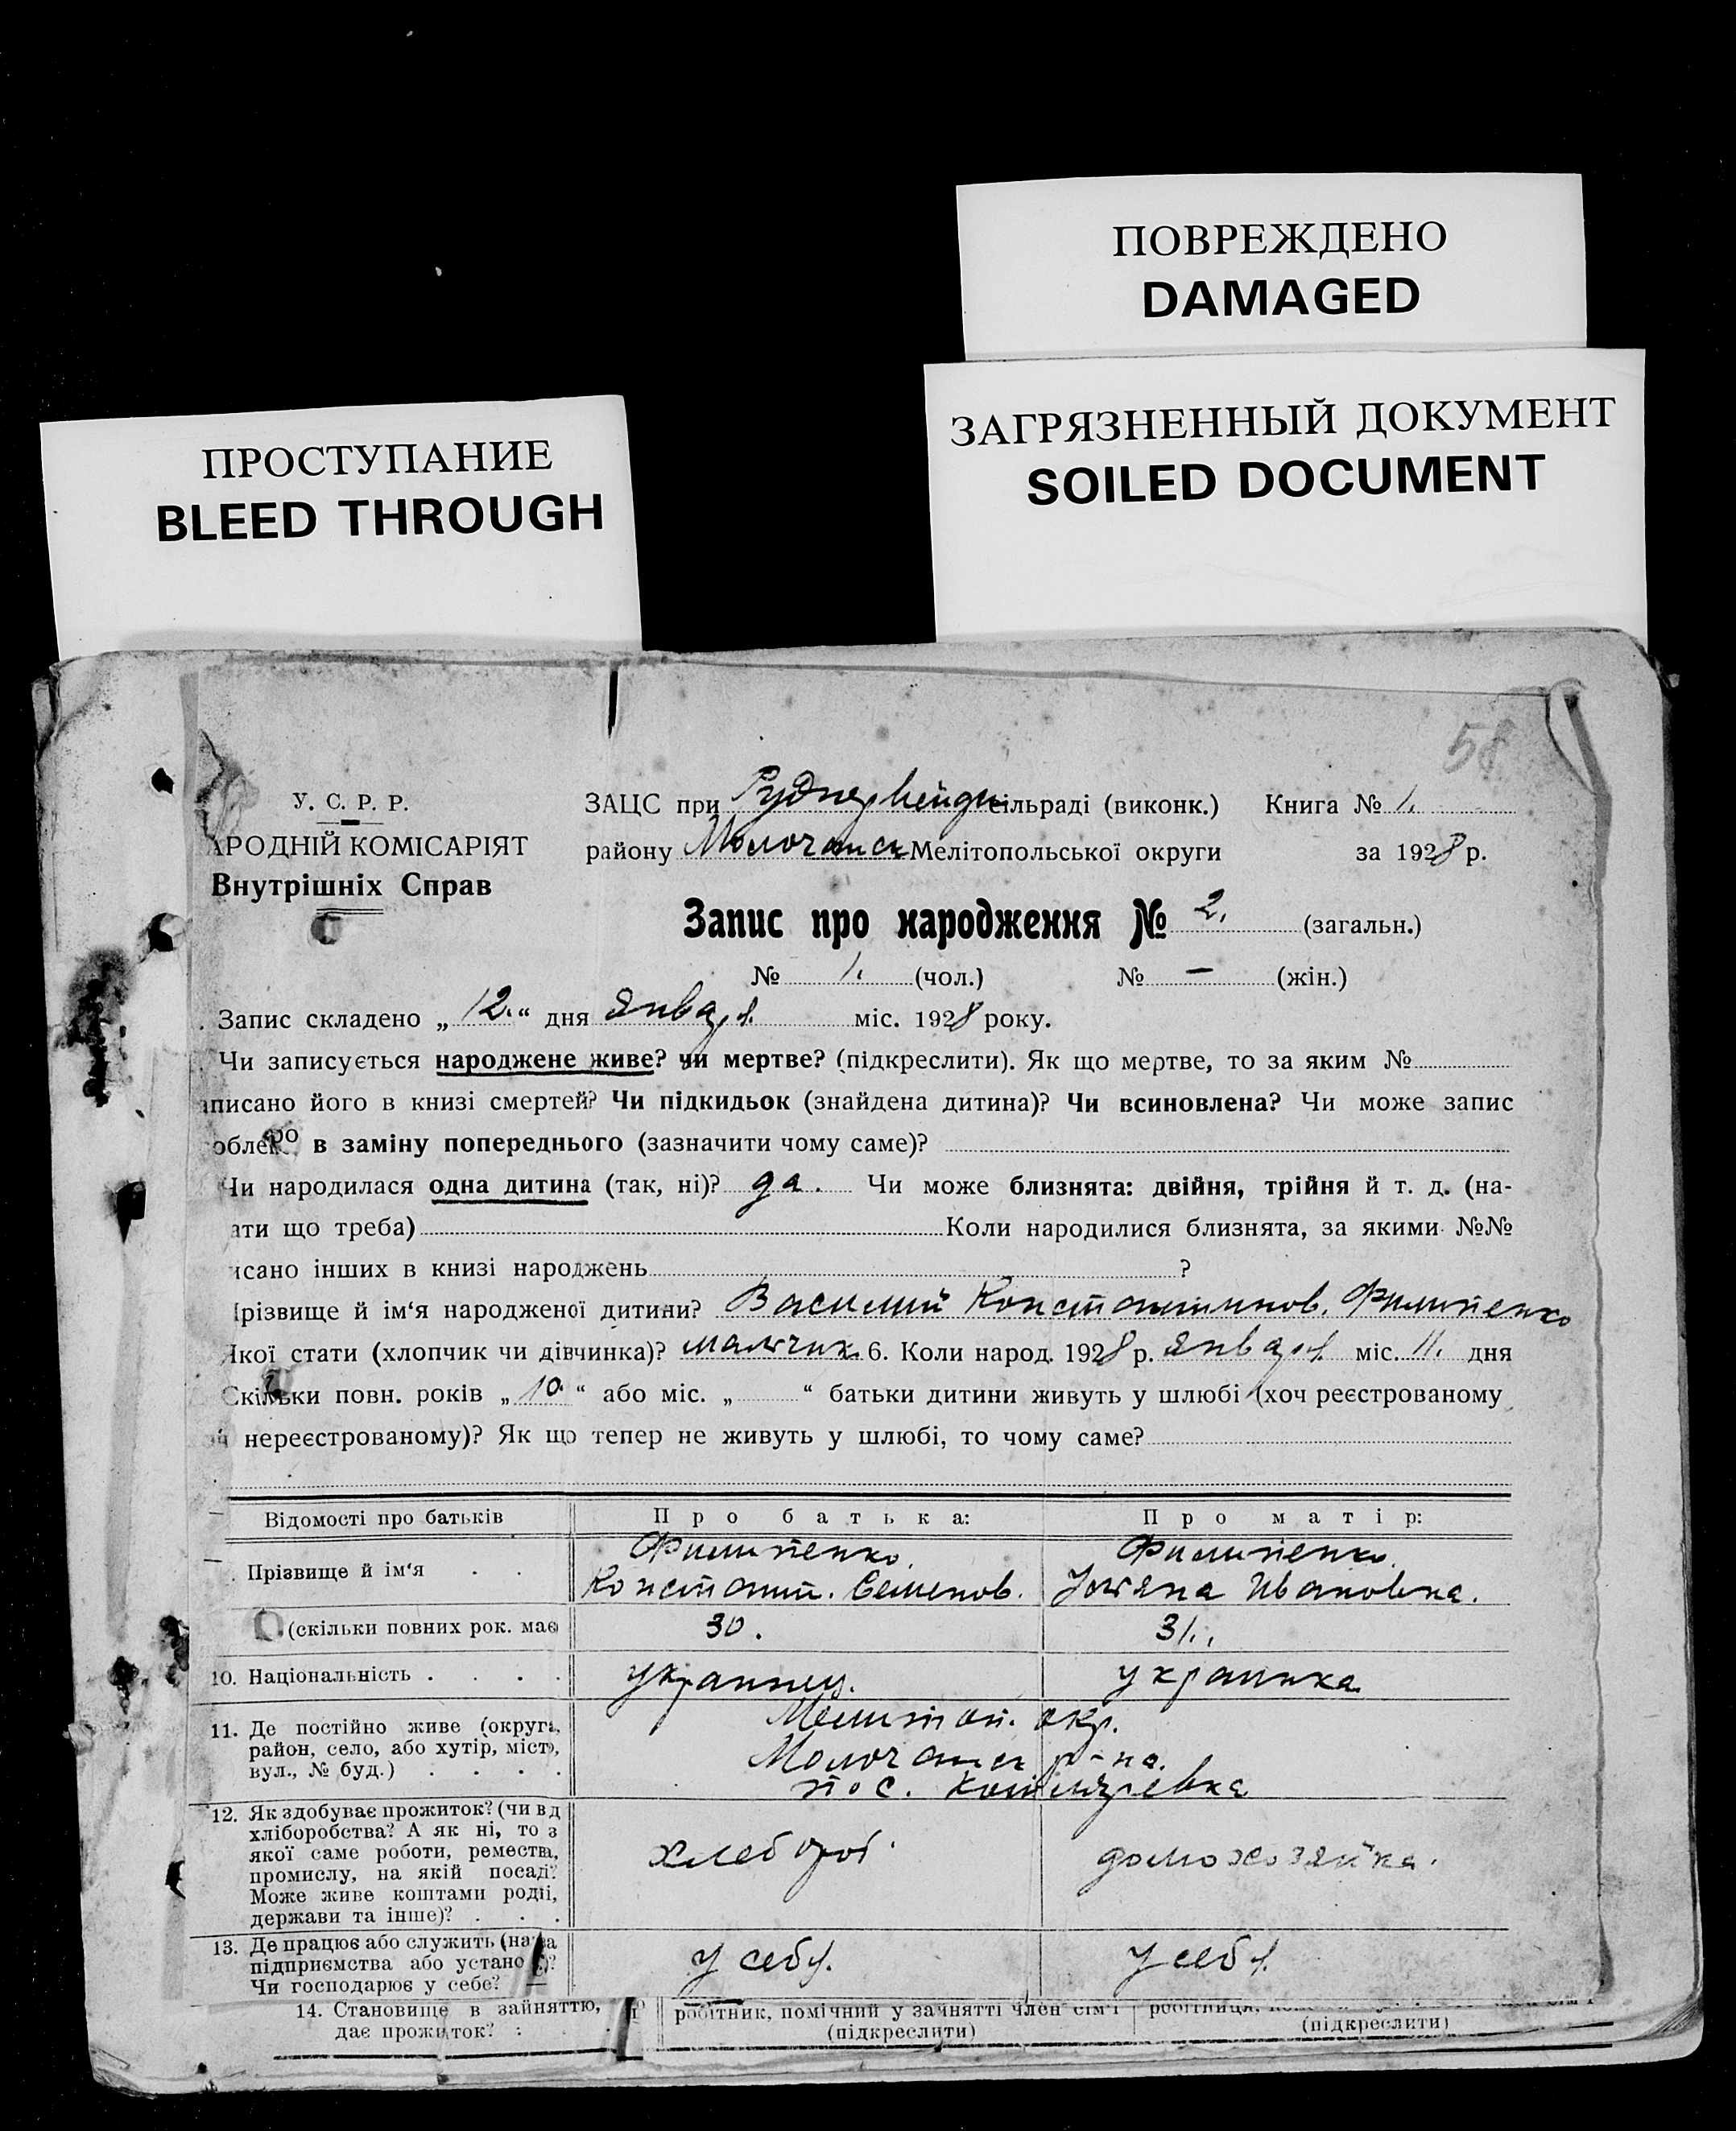 ПОВРЕЖДЕНО
DAMAGED
ЗАГРЯЗНЕННЫЙ ДОКУМЕНТ
SOILED DOCUMENT
ПРОСТУПАНИЕ
BLEED THROUGH
58
У. С. Р. Р.
АРОДНІЙ КОМІСАРІЯТ
Внутрішніх Справ
ЗАЦС при сільраді (виконк.) Книга № 1.
району Молочанск Мелітопольської округи за 1928 р.
Запис про народження № 2. (загальн.)
№ 1. (чол.) № — (жін.)
Запис складено „ 12. “ дня Января міс. 1928 року.
Чи записується народжене живе? чи мертве? (підкреслити). Як що мертве, то за яким №
аписано його в книзі смертей? Чи підкидьок (знайдена дитина)? Чи всиновлена? Чи може запис
в заміну попереднього (зазначити чому саме)?
Чи народилася одна дитина (так, ні)? да. Чи може близнята: двійня, трійня й т. д. (на-
ати що треба) Коли народилися близнята, за якими №№
исано інших в книзі народжень ?
Прізвище й ім‘я народженої дитини? Василий Константинов. Филипенко
Якої стати (хлопчик чи дівчинка)? мальчик 6. Коли народ. 1928 р. Января міс. 11. дня
Скільки повн. років „ 10. “ або міс. „ “ батьки дитини живуть у шлюбі (хоч реєстрованому
нереєстрованому)? Як що тепер не живуть у шлюбі, то чому саме?
Відомості про батьків
Про батька:
Про матір:
Прізвище й ім‘я . .
Филипенко.
Констант. Семенов.
Филипенко.
Ульяна Ивановна.
(скільки повних рок. має
30.
31.
10. Національність . . . .
украинец.
украинка
11. Де постійно живе (округа,
район, село, або хутір, місто,
вул., № буд.) . . . .
Мелитоп. окр.
Молочанск р-на.
пос. Котляревка
12. Як здобуває прожиток? (чи від
хліборобства? А як ні, то з
якої саме роботи, ремества,
промислу, на якій посаді?
Може живе коштами родії,
держави та інше)? . . .
хлебороб.
домохозяйка.
13. Де працює або служить (назва
підприємства або устано )?
Чи господарює у себе?
у себя.
у себя.
14. Становище в зайняттю,
дає прожиток? :
робітник, помічний у зайнятті член сім‘ї
(підкреслити)
робітниця,
(підкреслити)